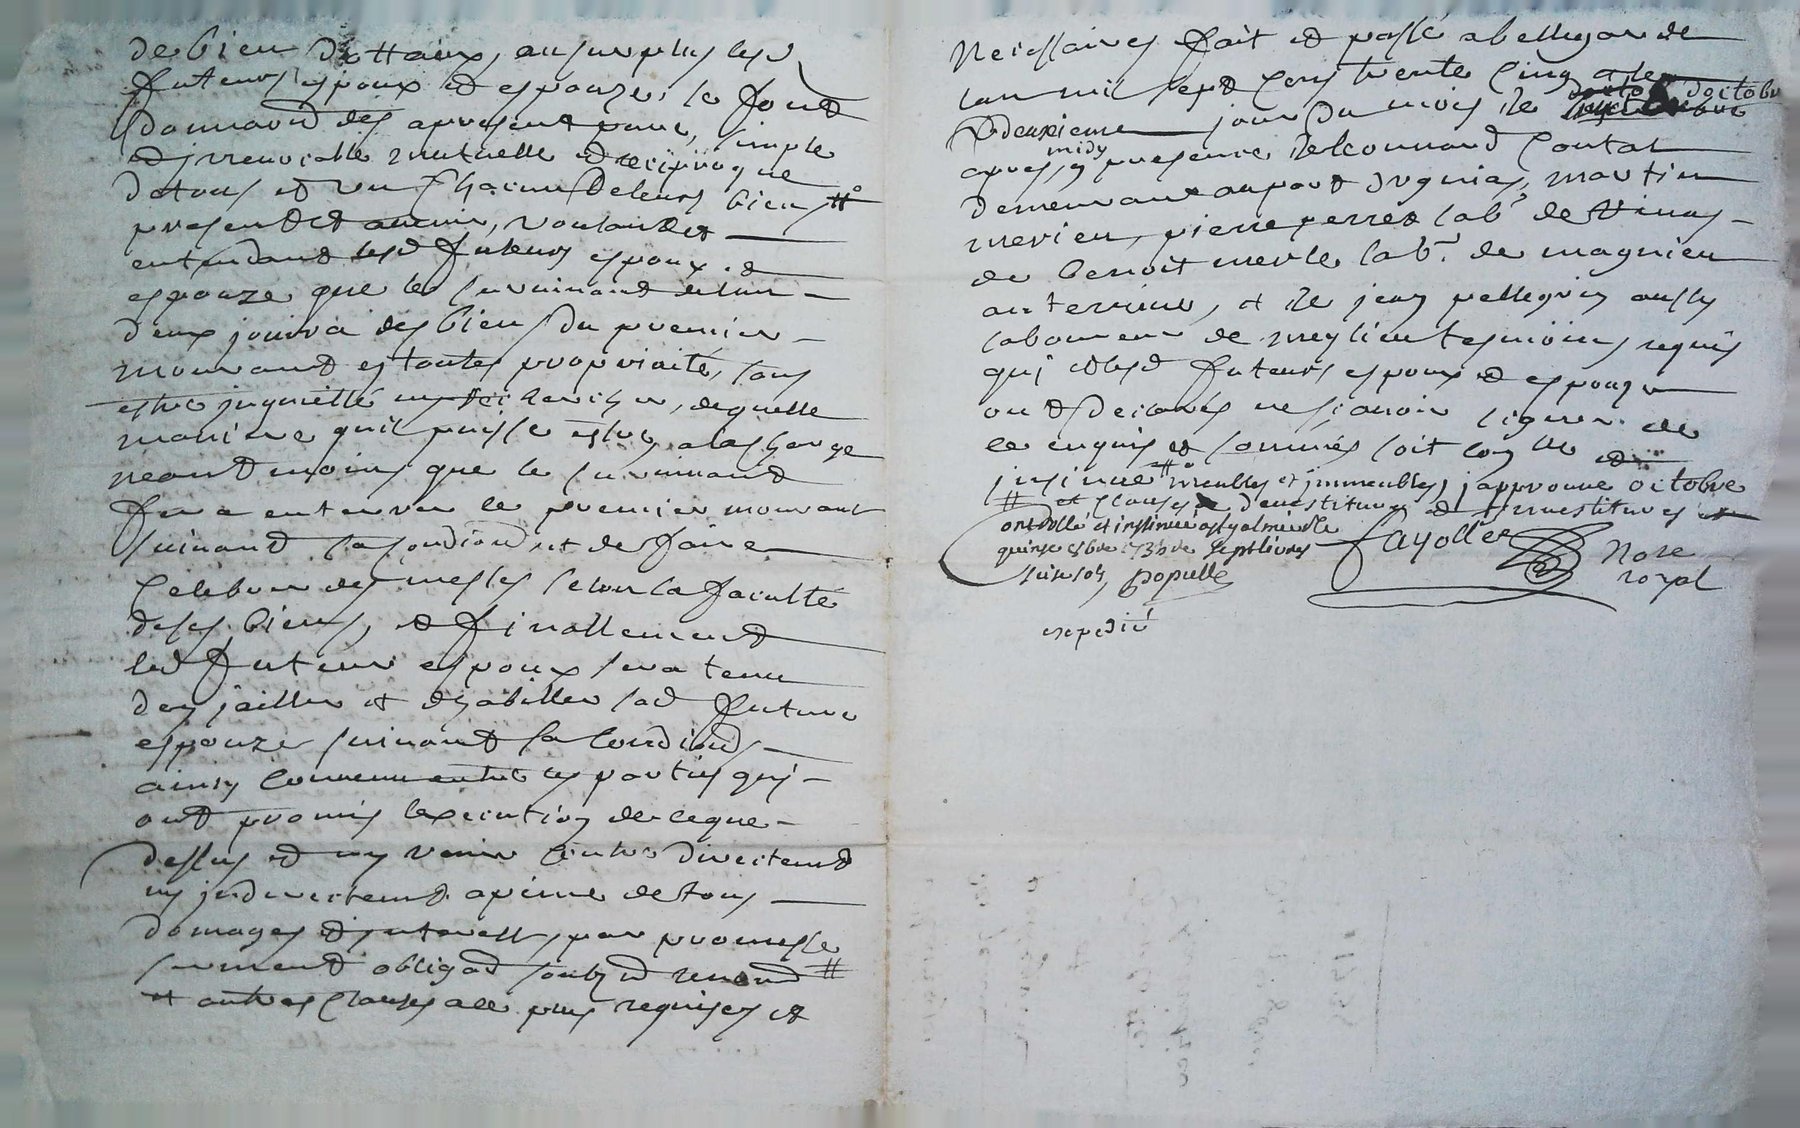 de bien dottaux, au surplus lesd
futeurs espoux et espouze, se sont
donnaon des apresent pour, simple
et jrrevocable mutuelle et reciproque
de tous et un chacuns de leurs biens #
presents et avenir, voulant et
entendant lesd futeurs espoux et
espouze que le survivant de l'un
d'eux jouira des biens du premier
mourant en toutes propriaité, sans
estre jnquietté ny recherchez, de quelle
maniere quil puisse estre, a la charge
neantmoins que le survivant
fera enterrer le premier mourant
suivant sa condiond et de faire
celebrer des messes selon la faculté
de ses biens, et finallement
led futeur espoux sera tenu
denjailler et d'habiller lad future
espouze suivant sa condiond,
ainsy convenu entre les parties qui
ont promis lexecution de ce que
dessus et ny venir contre directemt
ny jndirectemt a peine de tous
domages et jnterests, par promesse
serment obligaon soubz et renond #
et autres clauses a ce plus requises et
Necessaires fait et passé a bellegarde
lan mil sept cens trente cinq et le
deuxieme jour du mois de d'octobre
apres midy presence de leonnard coutat
demeurant au port d'ugnias, martin
merieu, pierre perret lab. de
de benoit merle lab. de magnieu
, et de jean pellegrin aussy
laboureur de meylieu tesmoins requis
qui et lesd futeurs espoux et espouze
ont declarés ne sçavoir signer de
ce enquis et sommés soit con lle et
jnsinué # meubles et jmmeubles, japprouve octobre
# et clauses de devestitures et jnvestitures
controllé et insinué a st galmier le
quinse 8bre 1735 re sept livres
six sols, Populle
Fayolle Nore
royal
expedié